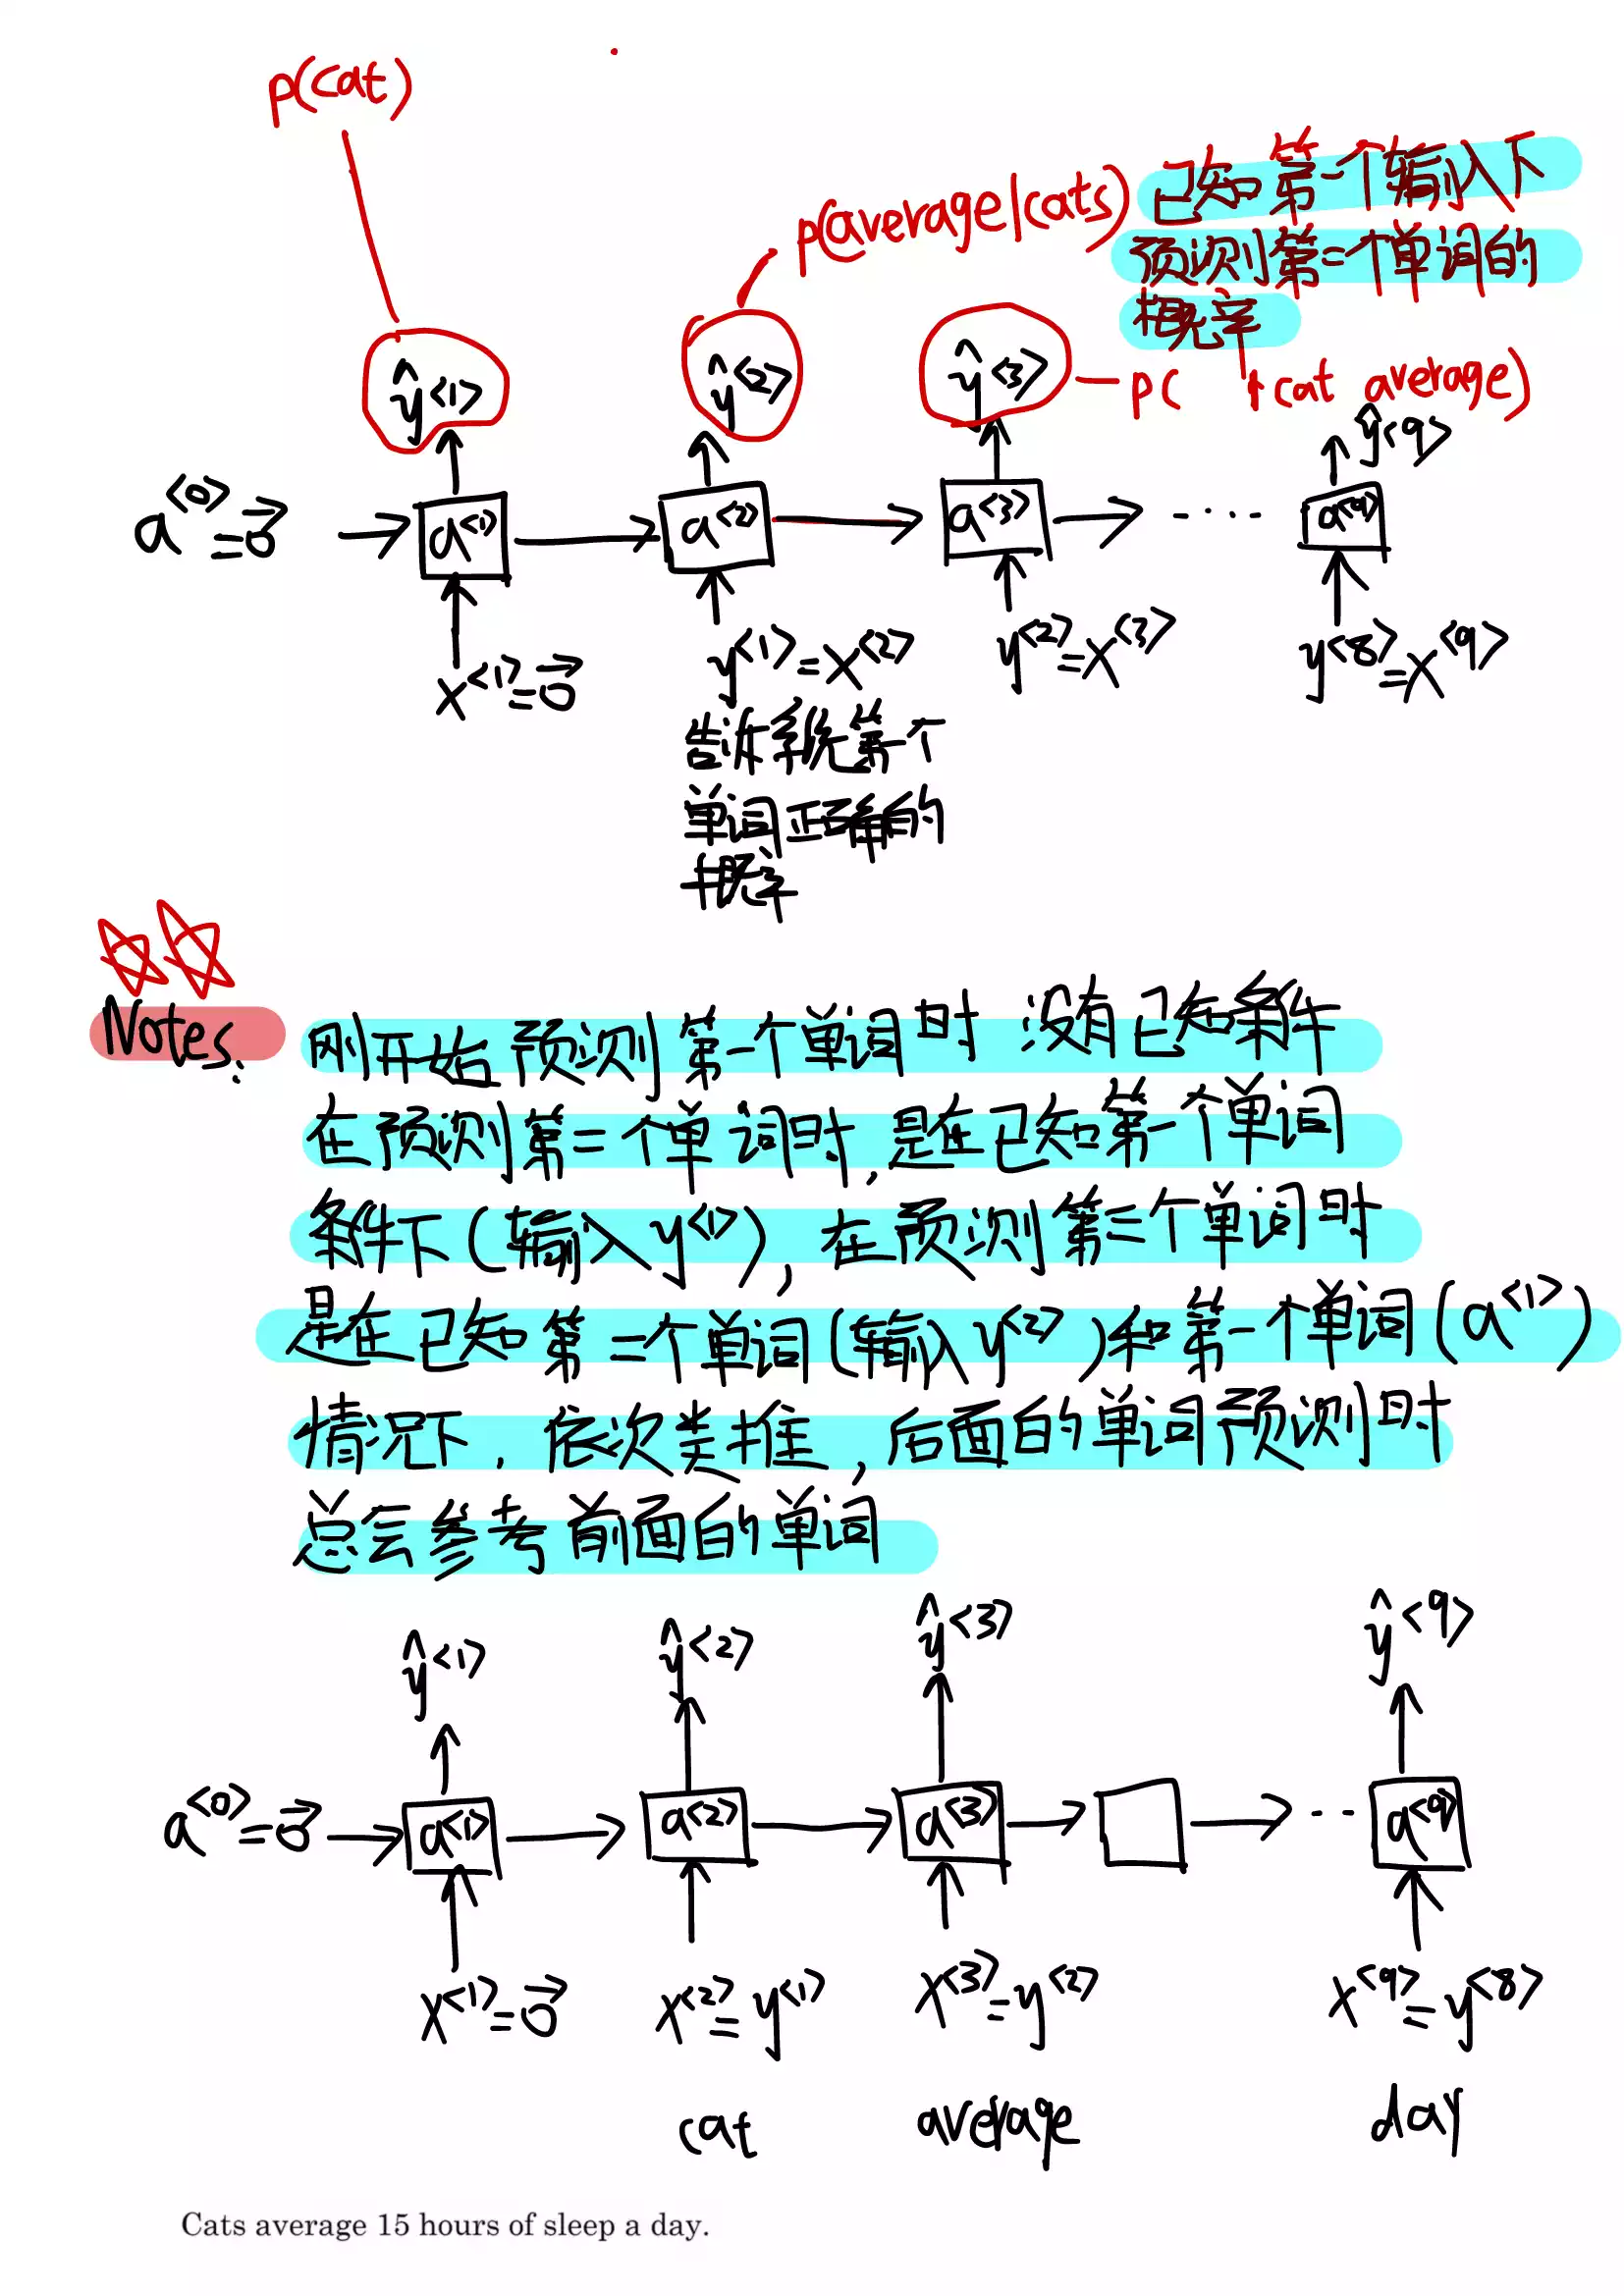 p(cat)
p(average|cats)
已知第一个输入下
预测第二个单词的
概率
ŷ<1>
ŷ<2>
ŷ<3>
p( | cat average)
ŷ<9>
a<0>=0⃗
a<1>
a<2>
a<3>
.....
a<9>
x<1>=0⃗
y<1>=x<2>
y<2>=x<3>
y<8>=x<9>
告诉系统第一个
单词正确的
概率
Notes:
刚开始预测第一个单词时 没有已知条件
在预测第二个单词时,是在已知第一个单词
条件下(输入y<1>),在预测第三个单词时
是在已知第二个单词(输入y<2>)和第一个单词(a<1>)
情况下,依次类推,后面的单词预测时
总会参考前面的单词
ŷ<1>
ŷ<2>
ŷ<3>
ŷ<9>
a<0>=0⃗
a<1>
a<2>
a<3>
...
a<9>
x<1>=0⃗
x<2>=y<1>
x<3>=y<2>
x<9>=y<8>
cat
average
day
Cats average 15 hours of sleep a day.